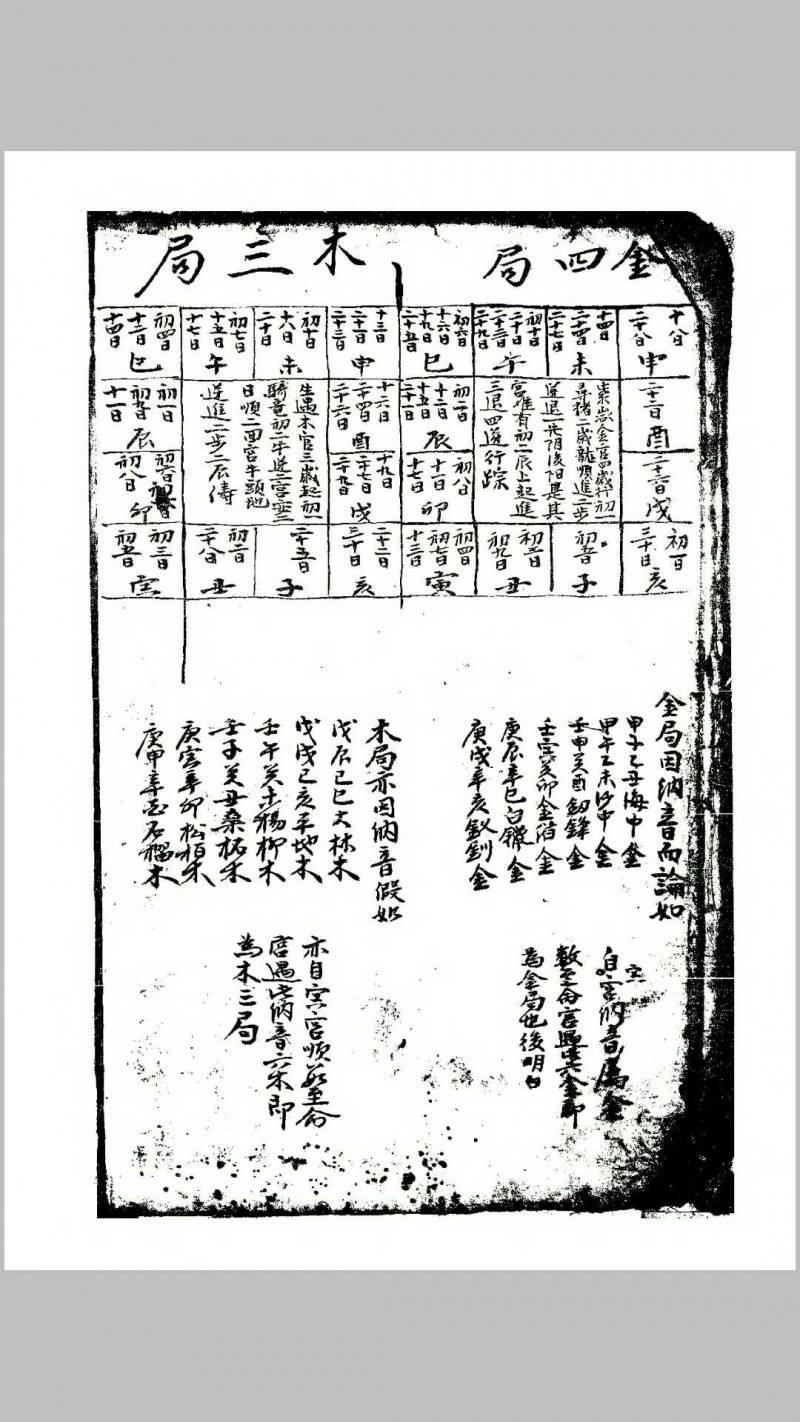 金四局
十八日
二十八日
申
二十二日
酉
二十六日
戌
初一日
三十日
亥
十四日
二十四日
二十七日
未
初五日
子
初十日
二十日
二十三日
二十九日
午
初三日
初九日
丑
金宫四歲行初一
尋猪二歲龍順進二步
逆退一步陰後陽是其
宫唯有初二辰上起進
三退四逆行踪
初六日
十六日
十九日
二十五日
巳
初二日
十二日
十五日
二十一日
辰
初八日
十一日
十七日
卯
初四日
初七日
十三日
寅
木三局
十三日
二十一日
二十三日
申
十六日
二十四日
二十六日
酉
十九日
二十七日
二十九日
戌
二十二日
三十日
亥
初十日
十八日
二十日
未
二十五日
子
初七日
十五日
十七日
午
初二日
二十八日
丑
生遇木宫三歲起初一
騎竜初二牛逆二宫安三
日順二回宫牛頭地
逆進二步二辰儔
初四日
十二日
十四日
巳
初一日
初九日
十一日
辰
初六日
初八日
卯
初三日
初五日
寅
金局因納音而論如
甲子乙丑海中金
甲午乙未沙中金
壬申癸酉劔鋒金
壬寅癸卯金泊金
庚辰辛巳白鑞金
庚戌辛亥釵釧金
自宫納音屬金
數至命宫遇此六金即
為金局也後明白
木局亦因納音假如
戊辰己巳大林木
戊戌己亥平地木
壬午癸未楊柳木
壬子癸丑桑柘木
庚寅辛卯松栢木
庚申辛酉石榴木
亦自寅宫順數至命
宫遇此納音六木即
為木三局